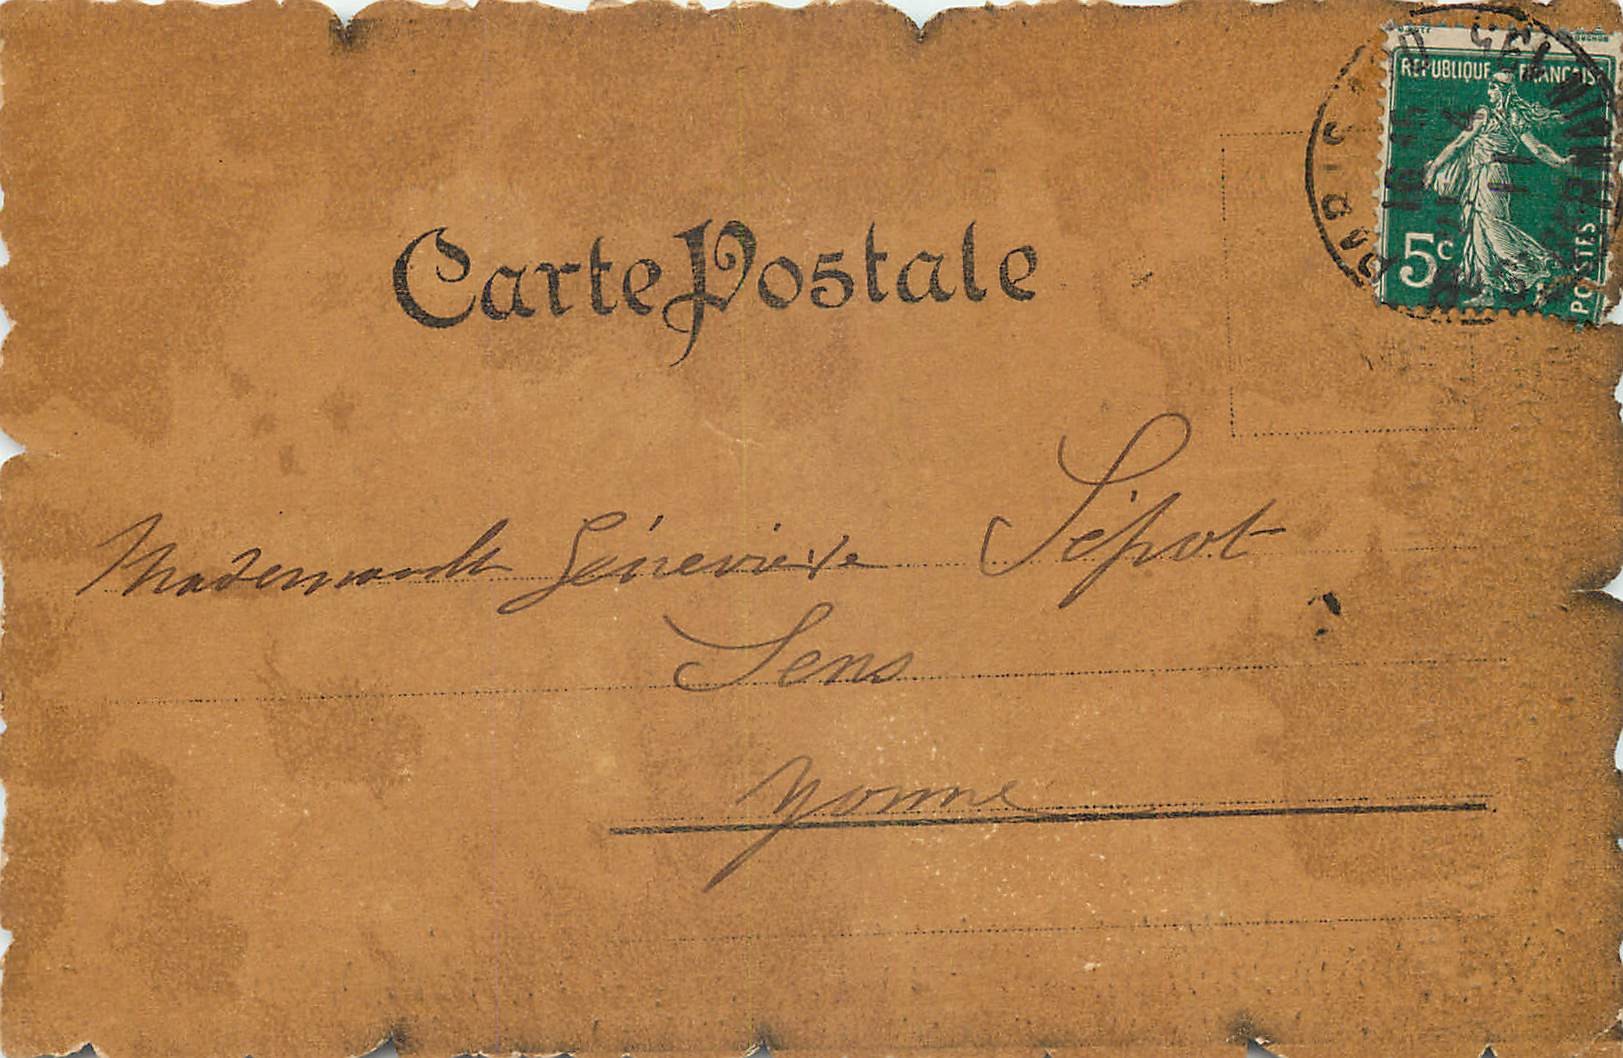 RÉPUBLIQUE FRANÇAISE
5c
POSTES
Carte Postale
Mademoiselle Géneviève Sépot
Sens
Yonne